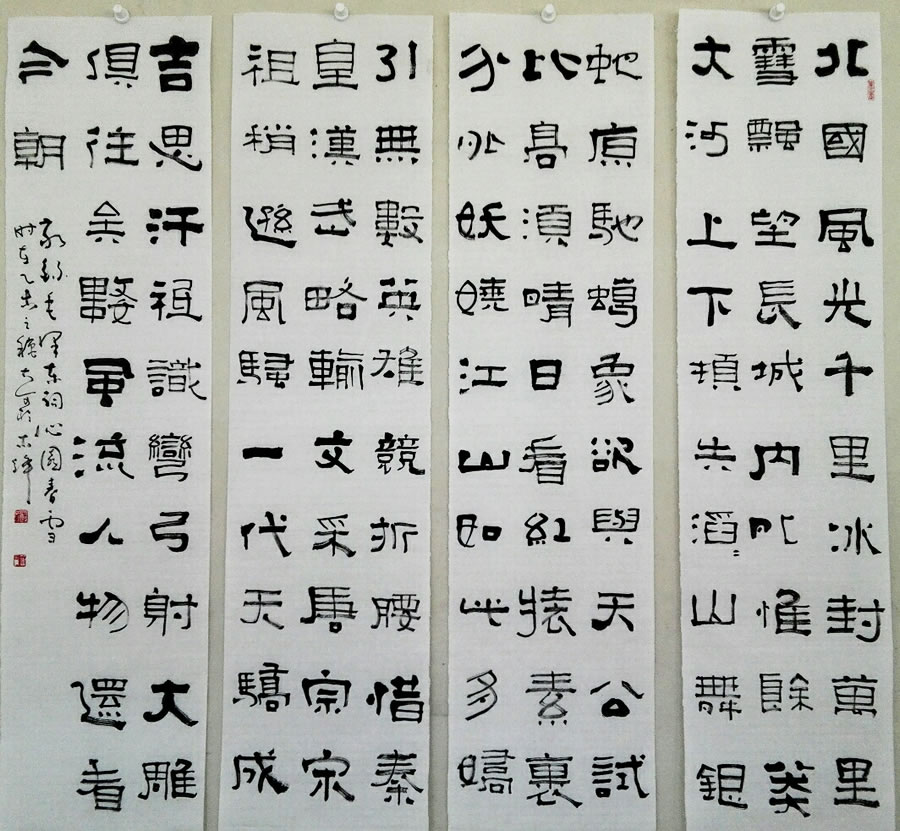 北國風光千里冰封萬里
雪飄望長城內外惟餘莽
大河上下頓失滔〻山舞銀
蛇原馳蠟象欲與天公試
比高須晴日看紅裝素裹
分外妖嬈江山如此多嬌
引無數英雄競折腰惜秦
皇漢武略輸文采唐宗宋
祖稍遜風騷一代天驕成
吉思汗祗識彎弓射大雕
俱往矣數風流人物還看
今朝
敬錄毛澤東詞沁園春雪
时在乙未之